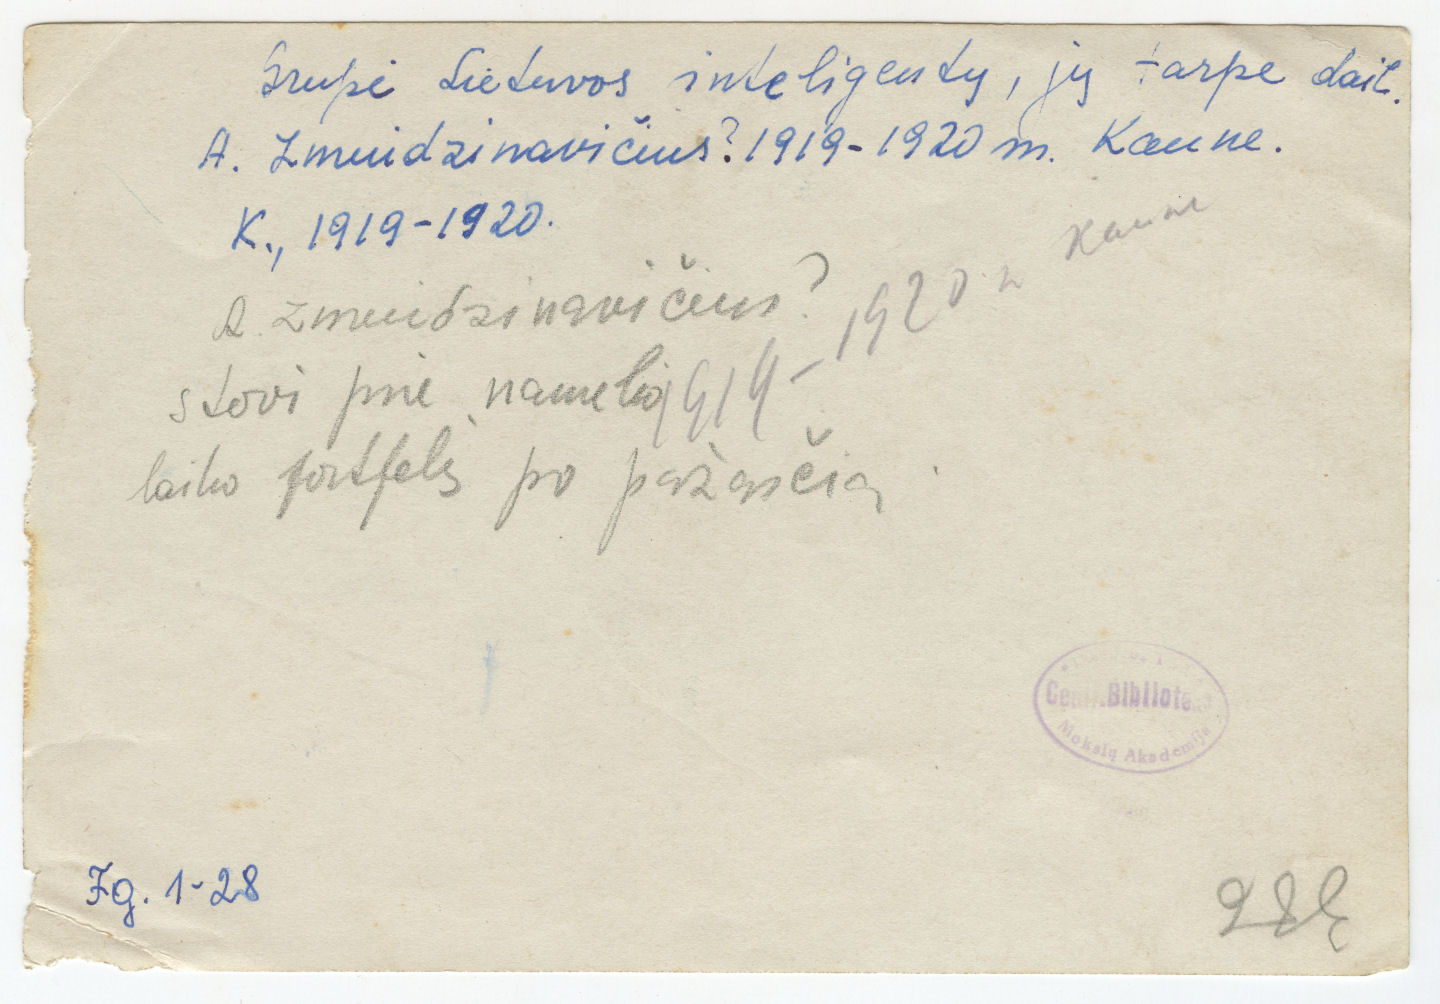 Grupė Lietuvos inteligentų, jų tarpe dail.
A. Žmuidzinavičius? 1919-1920 m. Kaune.
K., 1919-1920.
A. Žmuidzinavičius?
1919-1920 Kaune
stovi prie namelio
laiko portfelį po pažasčia.
Centr. Biblioteka
Mokslų Akademija
Fg. 1-28